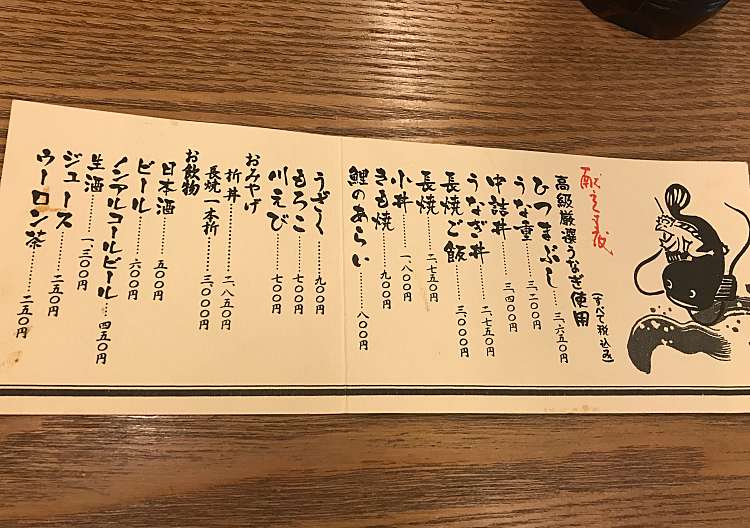 献立表
高級厳選うなぎ使用
(すべて税込み)
ひつまぶし……三、六五〇円
うな重……三、二〇〇円
中詰丼……三、四〇〇円
うなぎ丼……二、七五〇円
長焼ご飯……三、〇〇〇円
長焼……二、七五〇円
小丼……一、八〇〇円
きも焼……九〇〇円
鯉のあらい……八〇〇円
うざく……九〇〇円
もろこ……七〇〇円
川えび……七〇〇円
おみやげ
折丼……二、八五〇円
長焼一本折……三、〇〇〇円
お飲物
日本酒……五〇〇円
ビール……六〇〇円
ノンアルコールビール……四五〇円
生酒……一、三〇〇円
ジュース……二五〇円
ウーロン茶……二五〇円